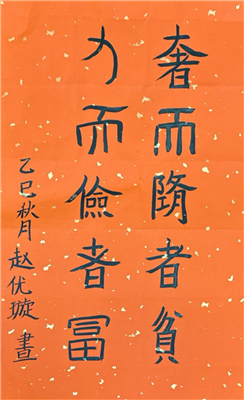 奢而隋者貧
力而儉者冨
乙巳秋月 赵优璇 書